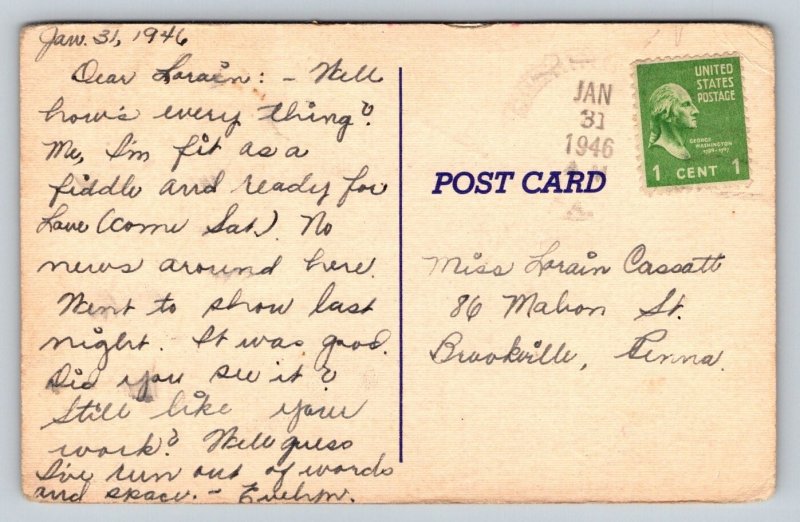 Jan. 31, 1946
Dear Lorain: - Well
how's every thing?
Me, I'm fit as a
fiddle and ready for
Love (come Sat.) No
news around here.
Went to show last
night. It was good.
Did you see it?
Still like your
work? Well guess
I've run out of words
and space. - Evelyn.
JAN
31
1946
UNITED
STATES
POSTAGE
GEORGE
WASHINGTON
1789-1797
1 CENT 1
POST CARD
Miss Lorain Cassatt
86 Mabon St.
Brookville, Penna.